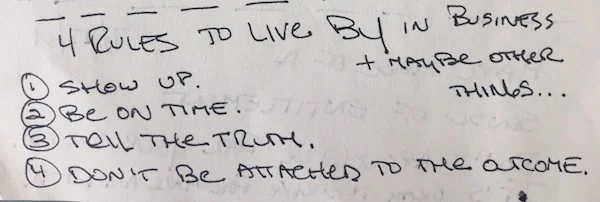 4 RULES TO LIVE BY IN BUSINESS
+ MAYBE OTHER
THINGS...
① SHOW UP.
② BE ON TIME.
③ TELL THE TRUTH.
④ DON'T BE ATTACHED TO THE OUTCOME.